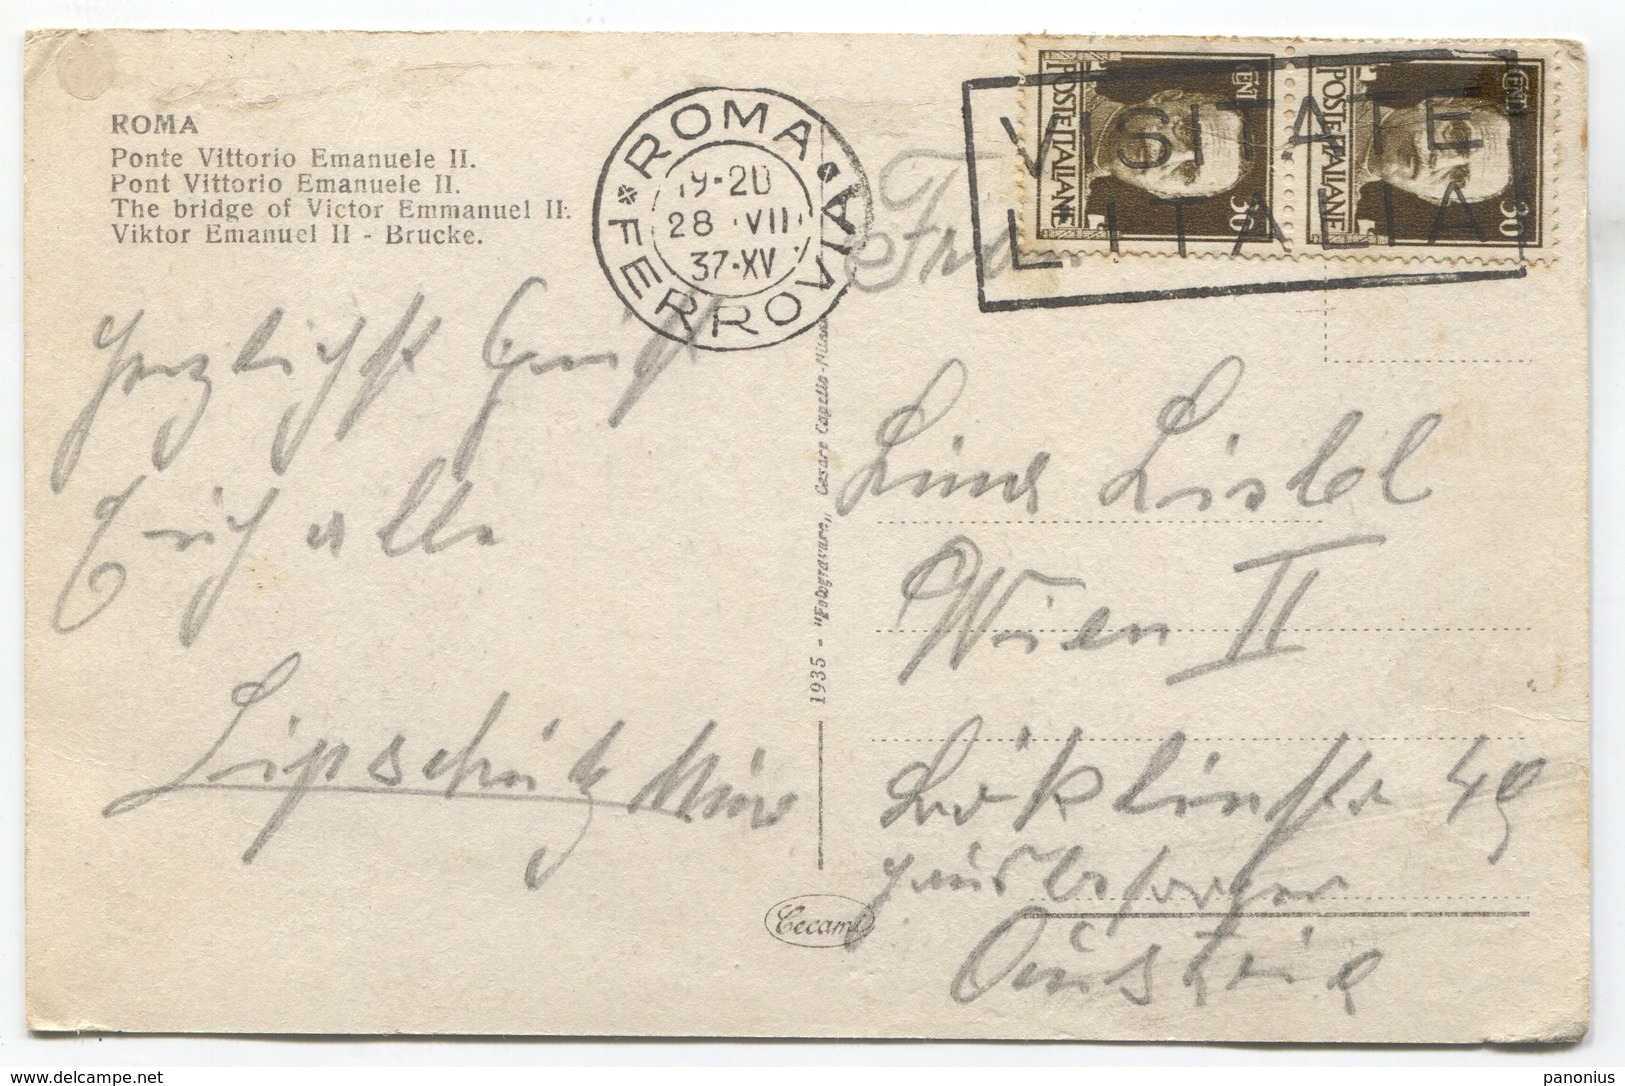 ROMA
Ponte Vittorio Emanuele II.
Pont Vittorio Emanuele II.
The bridge of Victor Emmanuel II.
Viktor Emanuel II - Brucke.
ROMA FERROVIA
19-20
28 VII
37-XV
POSTE ITALIANE CENT 30
POSTE ITALIANE CENT 30
VISITATE
L'ITALIA
Herzlichst Grüßt
Euch alle
Lipschütz
1935 - "Fotogravure,, Cesare Capello - Milano
Cecami
Frau
Lina
Wien II
49
Hausbesorger
Austria
delcampe.net
panonius